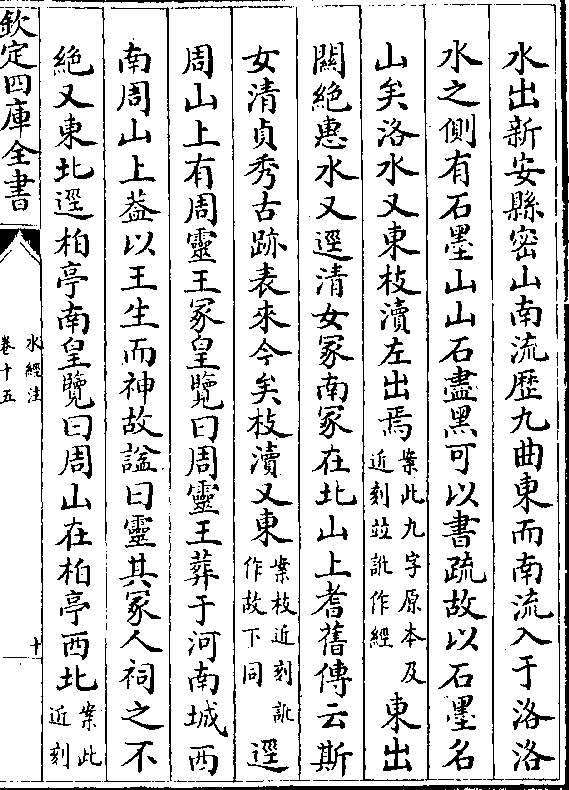 水出新安縣密山南流歷九曲東而南流入于洛洛
水之側有石墨山山石盡黑可以書疏故以石墨名
山矣洛水又東枝瀆左出焉案此九字原本及近刻竝訛作經東出
關絶惠水又逕清女冢南冢在北山上耆舊傳云斯
女清貞秀古跡表來今矣枝瀆又東案枝近刻訛作故下同逕
周山上有周靈王冢皇覽曰周靈王葬于河南城西
南周山上葢以王生而神故諡曰靈其冢人祠之不
絶又東北逕柏亭南皇覽曰周山在柏亭西北案此近刻
欽定四庫全書
水經注
卷十五
十